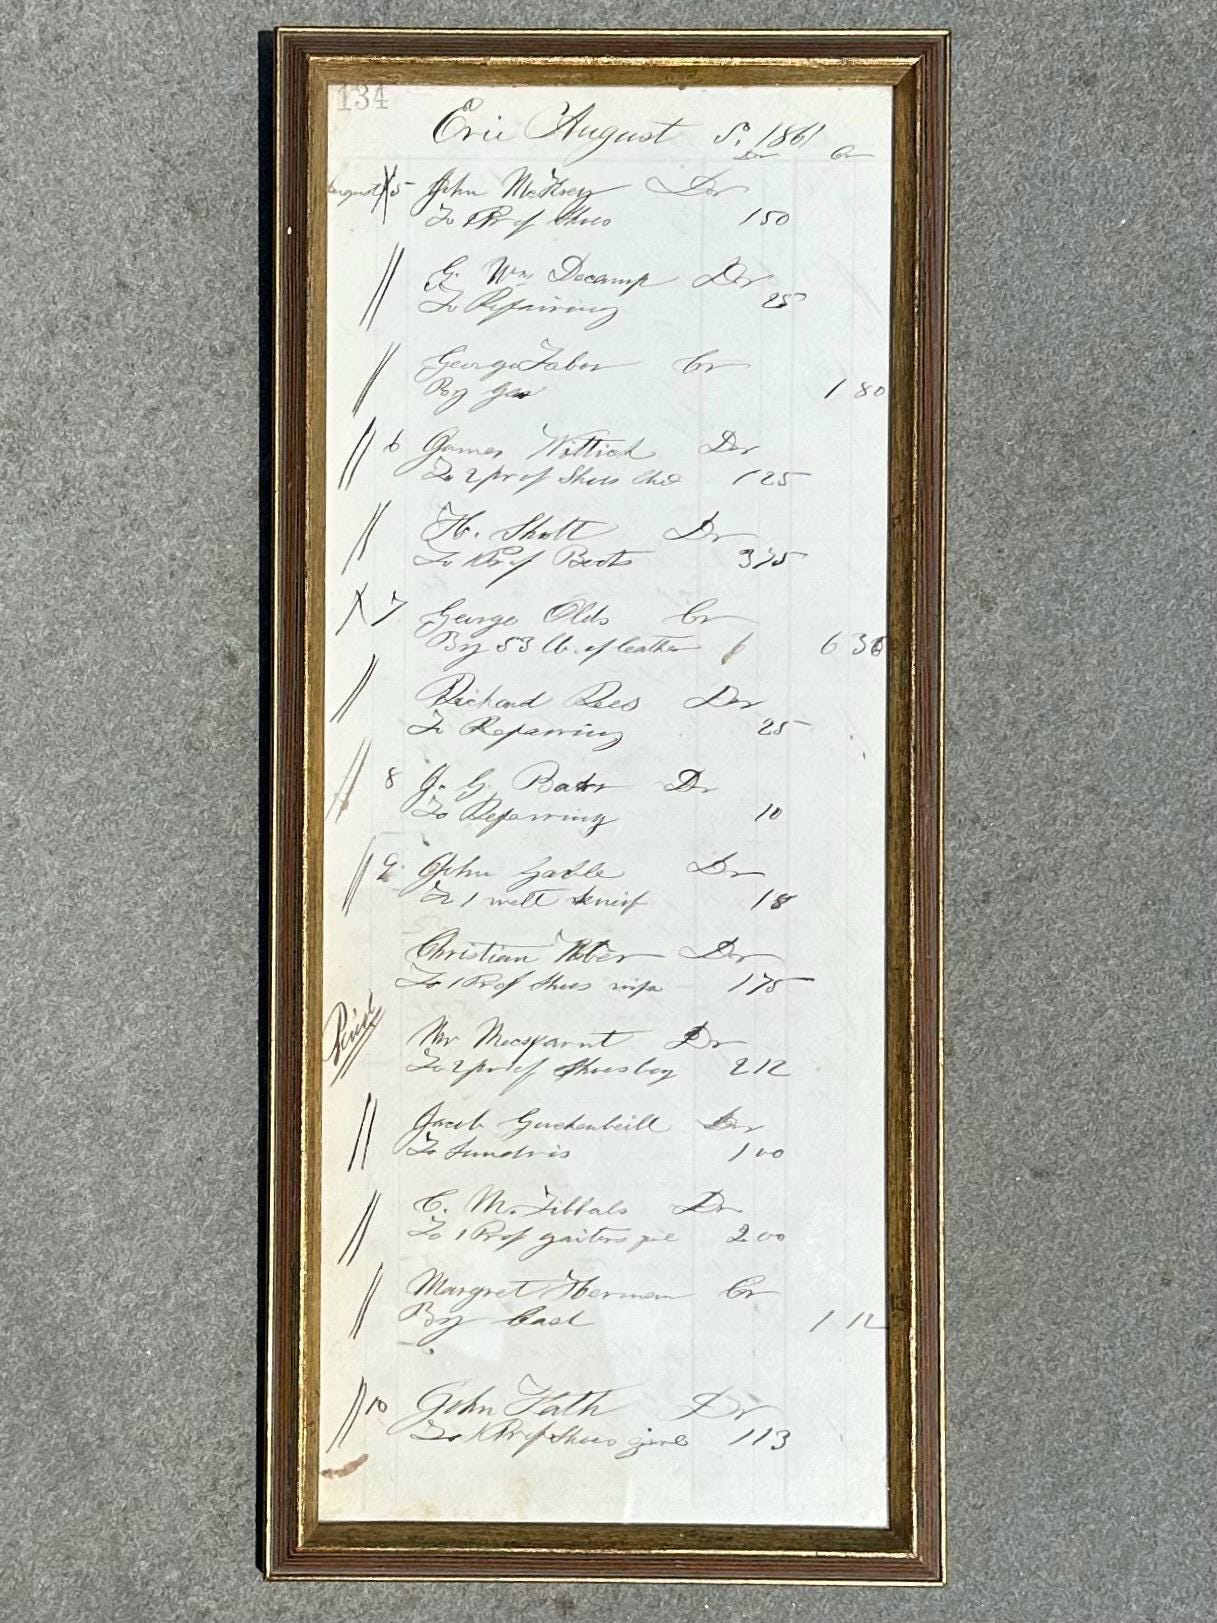 134
Erie August 5, 1861
Dr Cr
August 5 John Dr
To 1 Pr of Shoes 150
G. Wm. Decamp Dr
To Repairing 25
George Tabor Cr
By 1 80
6 James Wittich Dr
To 2 pr of Shoes chd 125
H. Shott Dr
To 1 Pr of Boots 375
7 George Olds Cr
By 53 lb. of leather 6 36
Richard Rees Dr
To Reparring 25
8 J. G. Dr
To Reparring 10
9 John Gable Dr
To 1 welt 18
Christian Dr
To 1 Pr of Shoes 175
Paid Mr Dr
To 2 pr of Shoes boy 212
Jacob Dr
To Sundris 100
C. M. Tibbals Dr
To 1 Pr of gaiters 200
Margret Herman Cr
By Cash 1 12
10 John Dr
To 1 Pr of Shoes 113